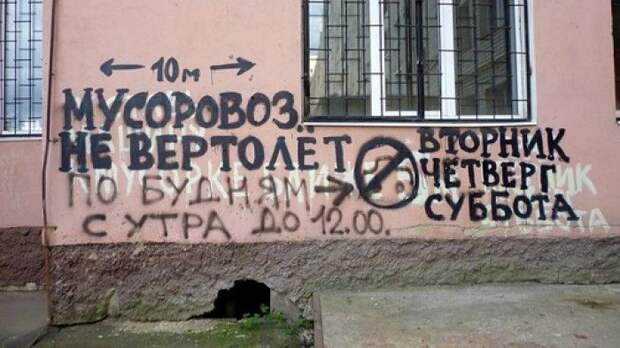 ← 10м →
МУСОРОВОЗ
НЕ ВЕРТОЛЁТ
ПО БУДНЯМ →
С УТРА ДО 12.00.
ВТОРНИК
ЧЕТВЕРГ
СУББОТА